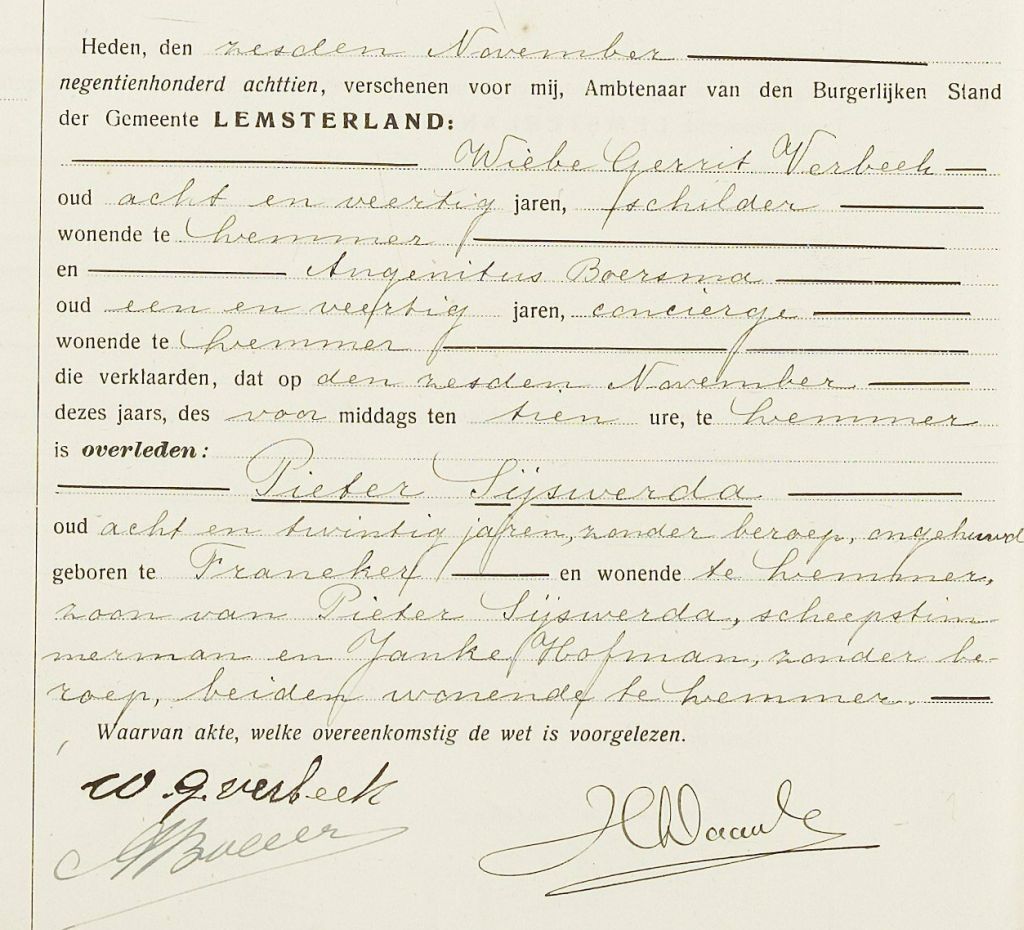 Heden, den zesden November
negentienhonderd achttien, verschenen voor mij, Ambtenaar van den Burgerlijken Stand
der Gemeente LEMSTERLAND:
Wiebe Gerrit Verbeek
oud acht en veertig jaren, schilder
wonende te Lemmer
en Angenitus Boersma
oud een en veertig jaren, concierge
wonende te Lemmer
die verklaarden, dat op den zesden November
dezes jaars, des voor middags ten tien ure, te Lemmer
is overleden:
Pieter Sijswerda
oud acht en twintig jaren, zonder beroep, ongehuwd
geboren te Franeker en wonende te Lemmer,
zoon van Pieter Sijswerda, scheepstim-
merman en Janke Hofman, zonder be-
roep, beiden wonende te Lemmer.
Waarvan akte, welke overeenkomstig de wet is voorgelezen.
W. G. Verbeek